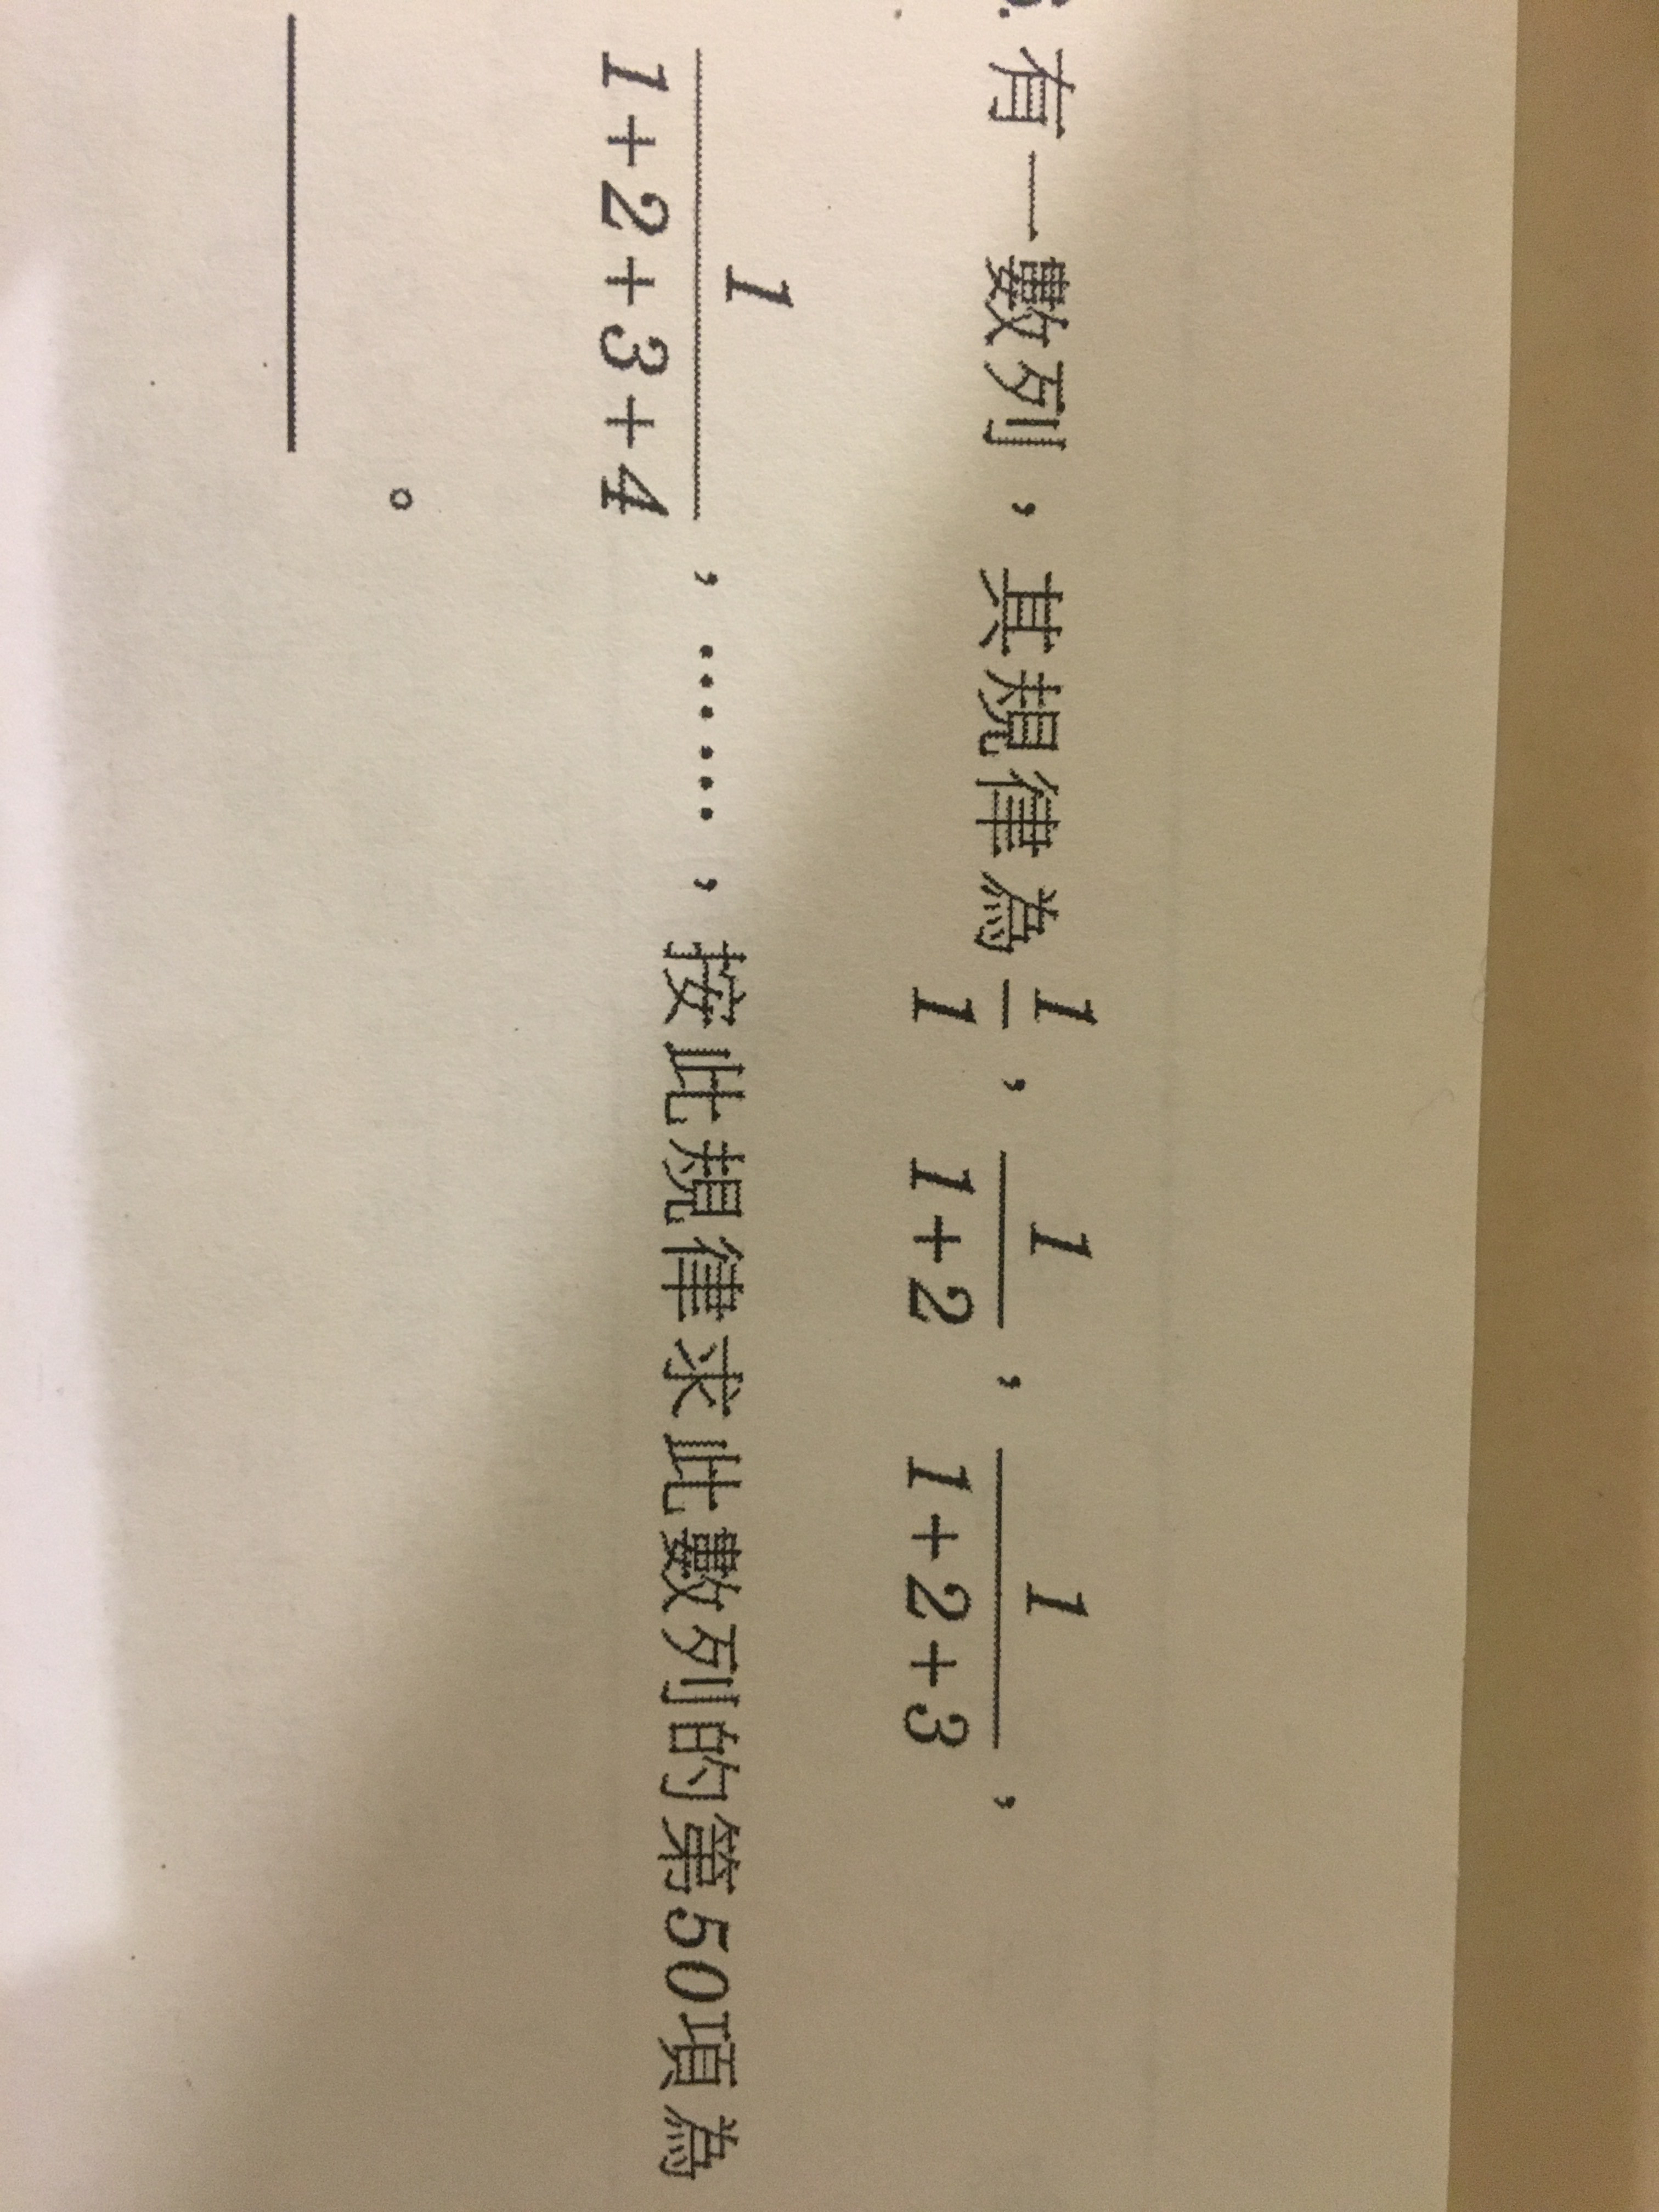 6. 有一數列，其規律為 1/1，1/(1+2)，1/(1+2+3)，
1/(1+2+3+4)，……，按此規律求此數列的第50項為
＿＿＿＿。